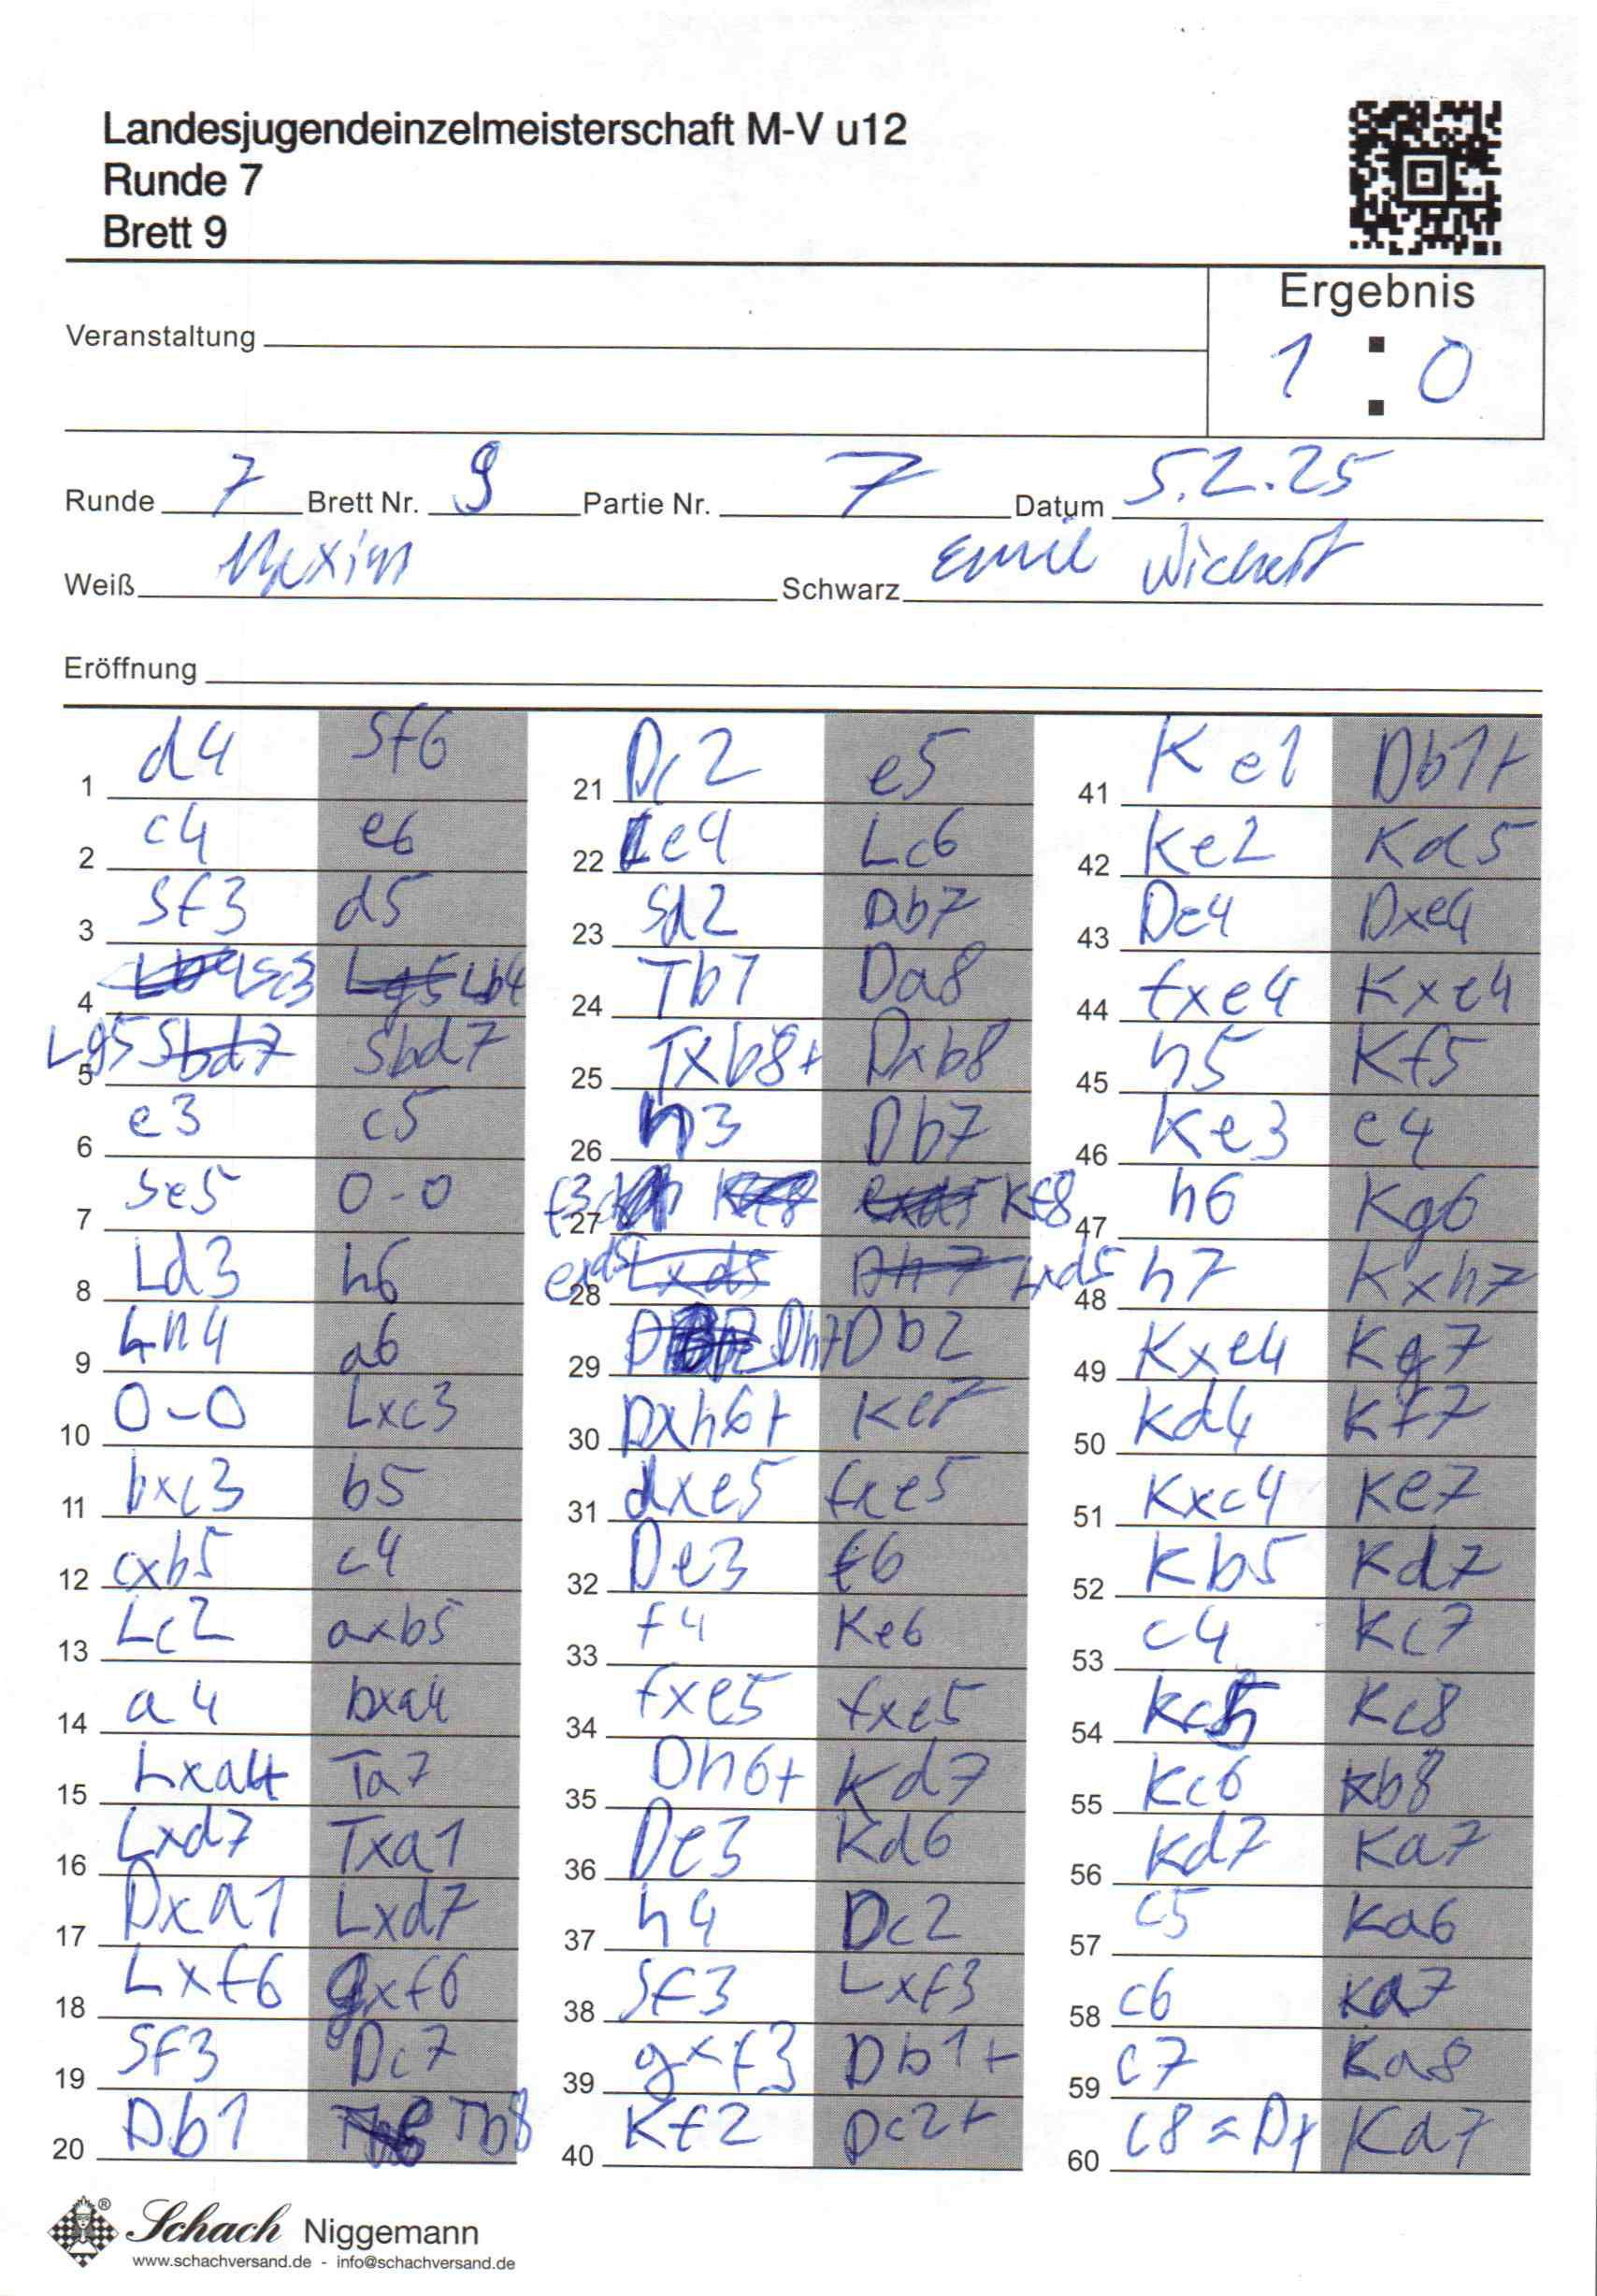 Landesjugendeinzelmeisterschaft M-V u12
Runde 7
Brett 9
Ergebnis
1 : 0
Veranstaltung
Runde 7 Brett Nr. 9 Partie Nr. 7 Datum 5.2.25
Weiß Maxim Schwarz Emil Wichert
Eröffnung
1 d4 Sf6
2 c4 e6
3 Sf3 d5
4 Sc3 Lb4
5 Lg5 Sbd7
6 e3 c5
7 Se5 0-0
8 Ld3 h6
9 Lh4 a6
10 0-0 Lxc3
11 bxc3 b5
12 cxb5 c4
13 Lc2 axb5
14 a4 bxa4
15 Lxa4 Ta7
16 Lxd7 Txa1
17 Dxa1 Lxd7
18 Lxf6 gxf6
19 Sf3 Dc7
20 Db1 Tb8
21 Dc2 e5
22 e4 Lc6
23 Sd2 Db7
24 Tb1 Da8
25 Txb8+ Dxb8
26 h3 Db7
27 f3 Kf8
28 exd5 Lxd5
29 Dh7 Db2
30 Dxh6+ Ke7
31 dxe5 fxe5
32 De3 f6
33 f4 Ke6
34 fxe5 fxe5
35 Dh6+ Kd7
36 De3 Kd6
37 h4 Dc2
38 Sf3 Lxf3
39 gxf3 Db1+
40 Kf2 Dc2+
41 Ke1 Db1+
42 Ke2 Kd5
43 De4 Dxe4
44 fxe4 Kxe4
45 h5 Kf5
46 Ke3 e4
47 h6 Kg6
48 h7 Kxh7
49 Kxe4 Kg7
50 Kd4 Kf7
51 Kxc4 Ke7
52 Kb5 Kd7
53 c4 Kc7
54 Kc5 Kc8
55 Kc6 Kb8
56 Kd7 Ka7
57 c5 Ka6
58 c6 Ka7
59 c7 Ka8
60 c8=D+ Ka7
Schach Niggemann
www.schachversand.de - info@schachversand.de